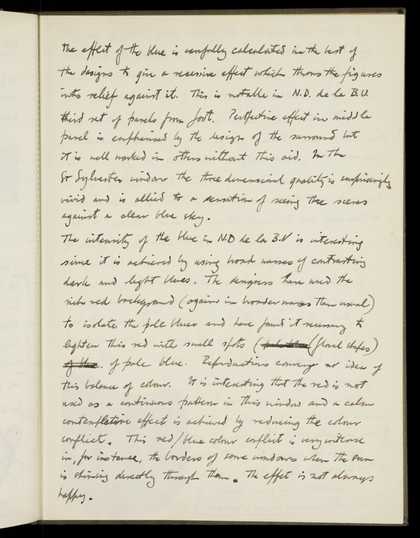 The effect of the blue is carefully calculated in the best of
the designs to give a recessive effect which throws the figures
into relief against it. This is notable in N.D. de la B.V.
third set of panels from foot. Perspective effect in middle
panel is emphasised by the design of the surround but
it is well worked in others without this aid. In the
St Sylvester window the three dimensional quality is surprisingly
vivid and is allied to a sensation of seeing the scenes
against a clear blue sky.
The intensity of the blue in N.D de la B.V is interesting
since it is achieved by using broad masses of contrasting
dark and light blues. The designers have used the
rich red background (again in broader mass than usual)
to isolate the pale blues and have found it necessary to
lighten this red with small spots (floral shapes)
of pale blue. Reproductions convey no idea of
this balance of colour. It is interesting that the red is not
used as a continuous pattern in this window and a calm
contemplative effect is achieved by reducing the colour
conflict. This red/blue colour conflict is very intense
in, for instance, the borders of some windows when the sun
is shining directly through them. The effect is not always
happy.